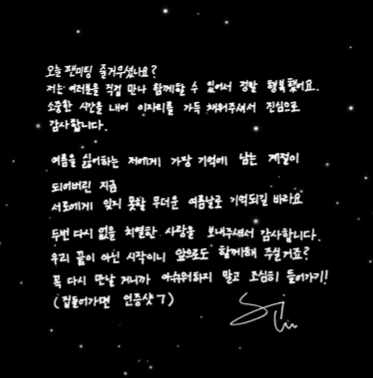 오늘 팬미팅 즐거우셨나요?
저는 여러분을 직접 만나 함께할 수 있어서 정말 행복했어요.
소중한 시간을 내어 이자리를 가득 채워주셔서 진심으로
감사합니다.
여름을 싫어하는 저에게 가장 기억에 남는 계절이
되어버린 지금
서로에게 잊지 못할 무더운 여름날로 기억되길 바라요
두번 다시 없을 치열한 사랑을 보내주셔서 감사합니다.
우리 끝이 아닌 시작이니 앞으로도 함께해 주실거죠?
꼭 다시 만날 거니까 아쉬워하지 말고 조심히 들어가기!
(집들어가면 인증샷ㄱ)